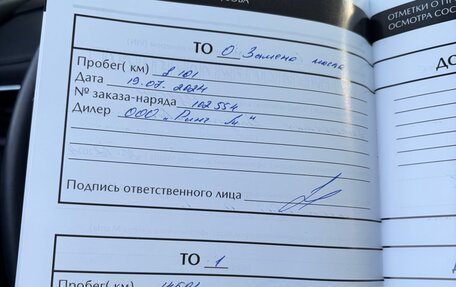 ОТМЕТКИ О П
ОСМОТРА СОС
ТО 0 Замена масла
Пробег( км) 8 101
Дата 19.07.2024
№ заказа-наряда 102554
Дилер ООО „Ринг М"
Подпись ответственного лица
ДО
ТО 1
Пробег( км)